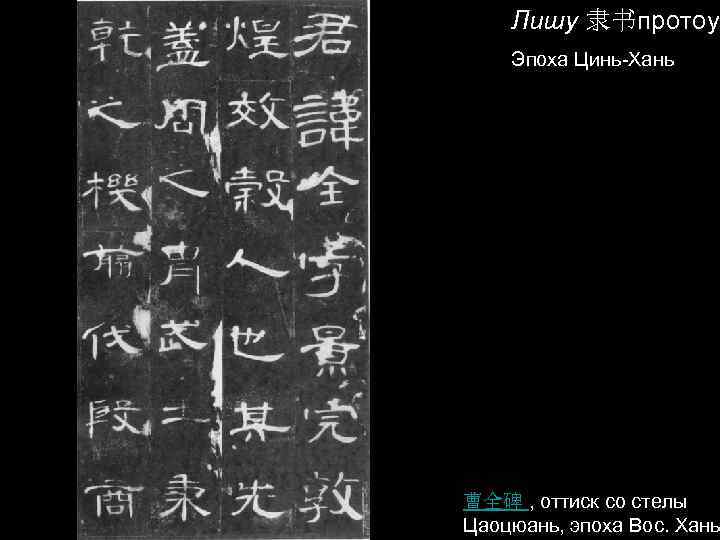 Лишу 隶书протоу
Эпоха Цинь-Хань
君諱全字景完敦
煌效穀人也其先
蓋周之胄武王秉
乾之機翦伐殷商
曹全碑 , оттиск со стелы
Цаоцюань, эпоха Вос. Хань